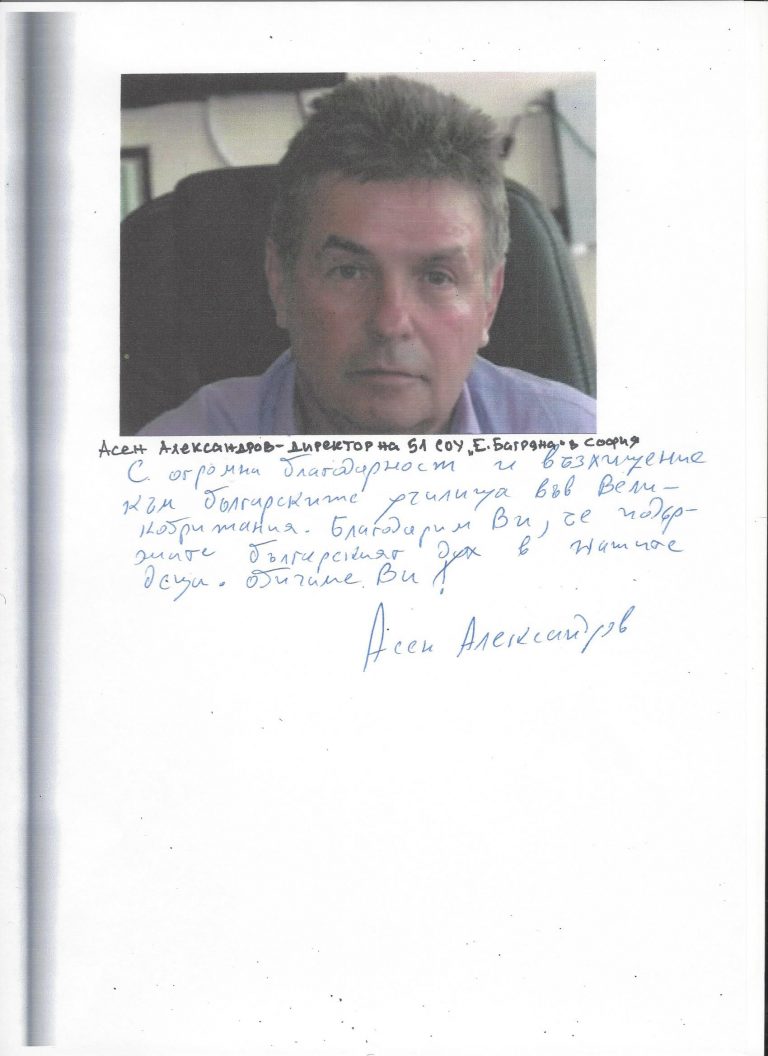 Асен Александров - директор на 51 СОУ „Е. Багряна" в София
С огромна благодарност и възхищение
към българските училища във Вели-
кобритания. Благодарим Ви, че подър-
жате българският дух в нашите
деца. Обичаме Ви!
Асен Александров